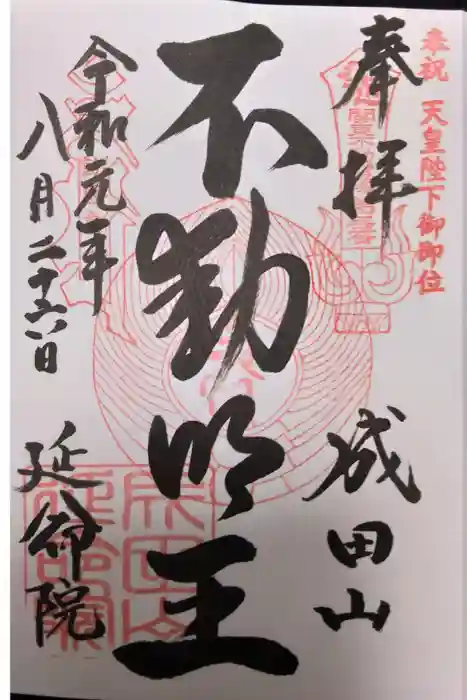 奉祝 天皇陛下御即位
奉拝
成田山
不動明王
令和元年
八月二十六日
延命院